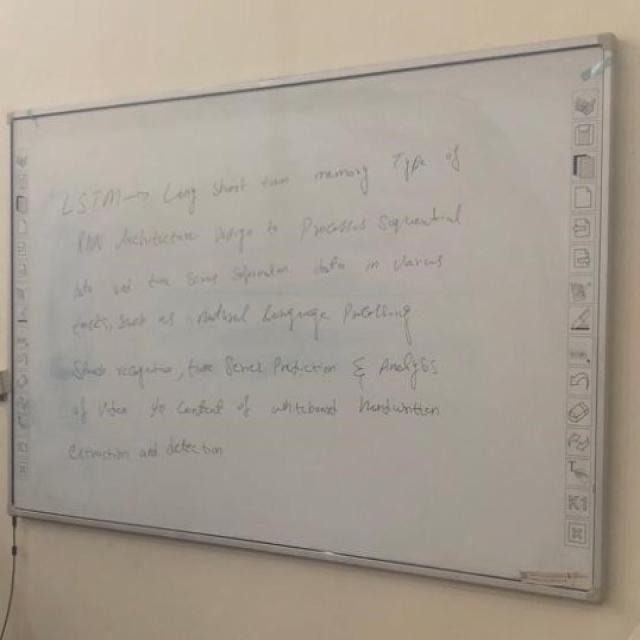 LSTM → Long short term memory Type of
RNN Architecture Design to Processes sequential
data and time series data in various
tasks, such as Natural Language Processing
recognition, time Series Prediction & Analysis
of Video to content of whiteboard handwritten
extraction and detection